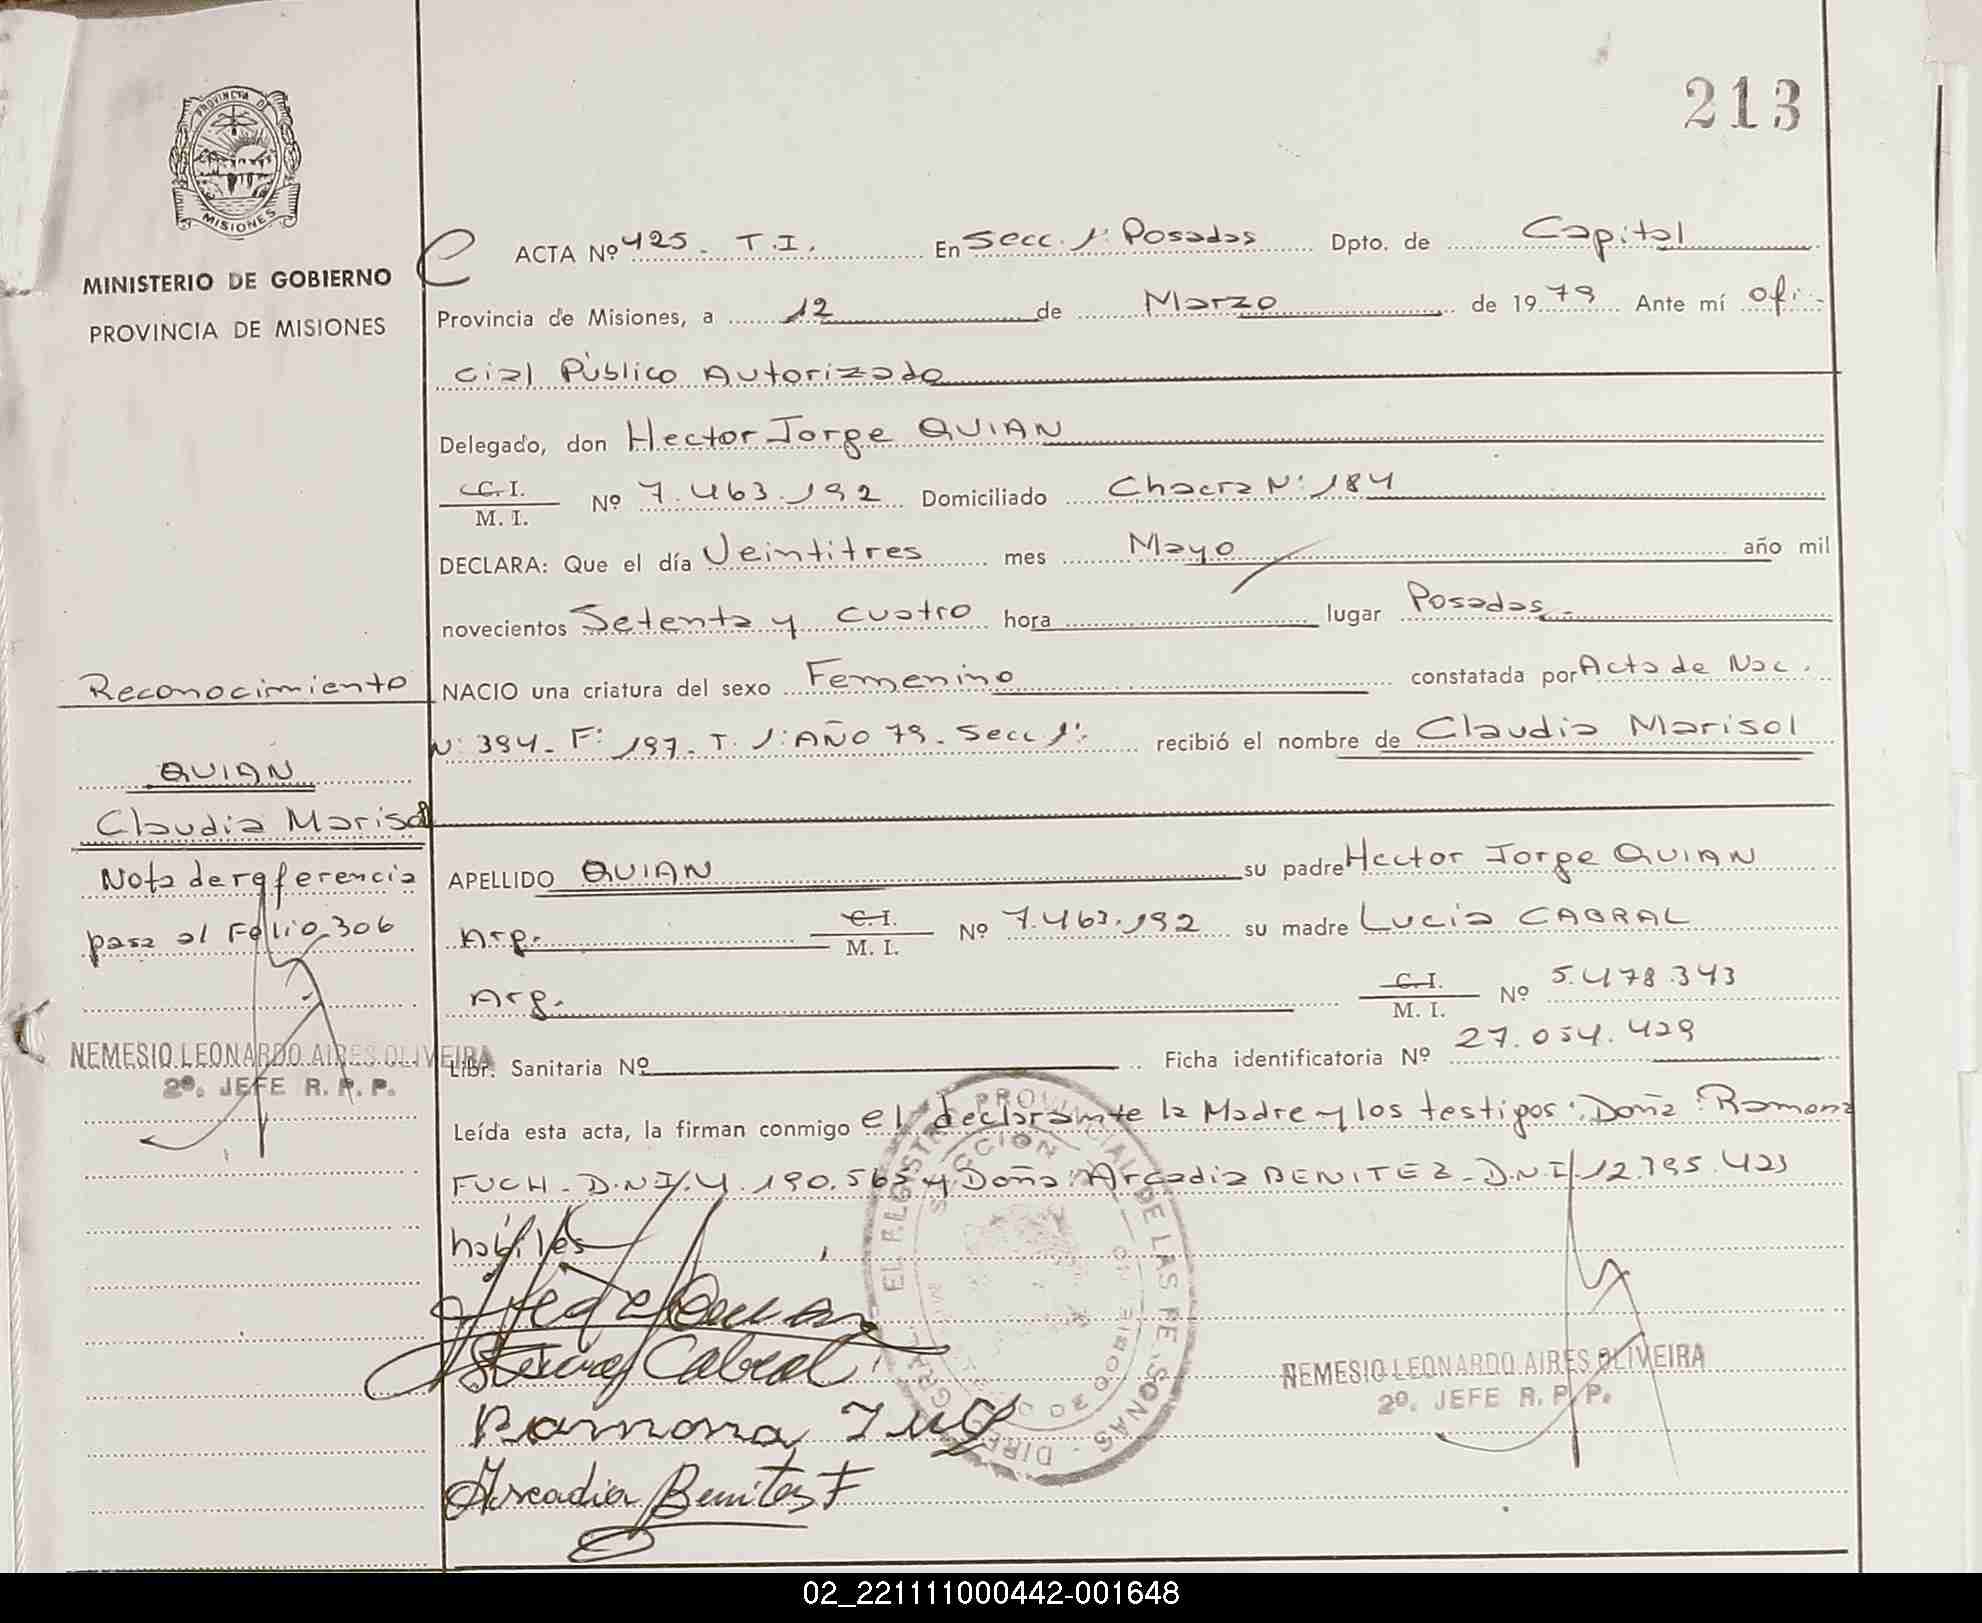 213
PROVINCIA DE
MISIONES
MINISTERIO DE GOBIERNO
PROVINCIA DE MISIONES
ACTA Nº 425 - T.I. En Secc. 1ª Posadas Dpto. de Capital
Provincia de Misiones, a 12 de Marzo de 1979 Ante mí ofi-
cial Público Autorizado
Delegado, don Hector Jorge QUIAN
C. I.
M. I. Nº 7.463.192 Domiciliado Chacra Nº 184
DECLARA: Que el día Veintitres mes Mayo año mil
novecientos Setenta y cuatro hora lugar Posadas.-
NACIO una criatura del sexo Femenino constatada por Acta de Nac.
Nº 394 - Fº 197 - T. 1º AÑO 79 - Secc 1ª recibió el nombre de Claudia Marisol
APELLIDO QUIAN su padre Hector Jorge QUIAN
Arg. C. I.
M. I. Nº 7.463.192 su madre Lucia CABRAL
Arg. C. I.
M. I. Nº 5.478.343
Libr. Sanitaria Nº Ficha identificatoria Nº 27.054.429
Leída esta acta, la firman conmigo el declarante la Madre y los testigos: Doña Ramona
FUCH - D.N.I. 4.190.565 y Doña Arcadia BENITEZ - D.N.I. 12.795.423
hábiles
Cabral
Ramona
Arcadia Benites F
NEMESIO LEONARDO AIRES OLIVEIRA
2º. JEFE R. P. P.
Reconocimiento
QUIAN
Claudia Marisol
Nota de referencia
pasa al Folio 306
NEMESIO LEONARDO AIRES OLIVEIRA
2º. JEFE R. P. P.
02_221111000442-001648